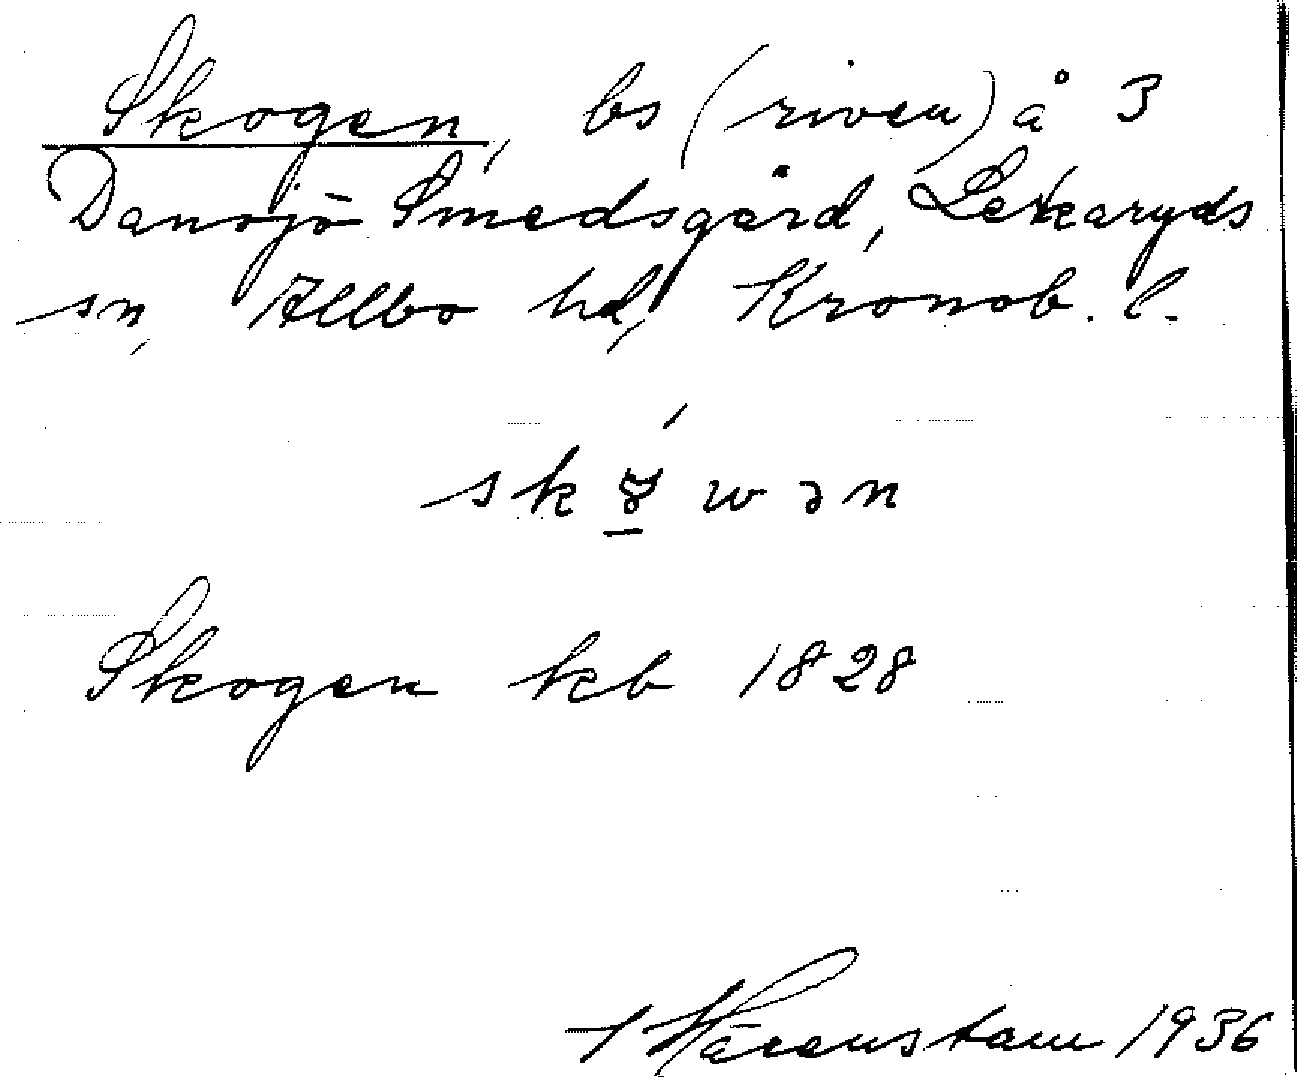 Skogen, bs (riven) å 3
Dansjö Smedsgård, Lekaryds
sn, Allbo hd, Kronob. l.
wən
Skogen kb 1828
1936